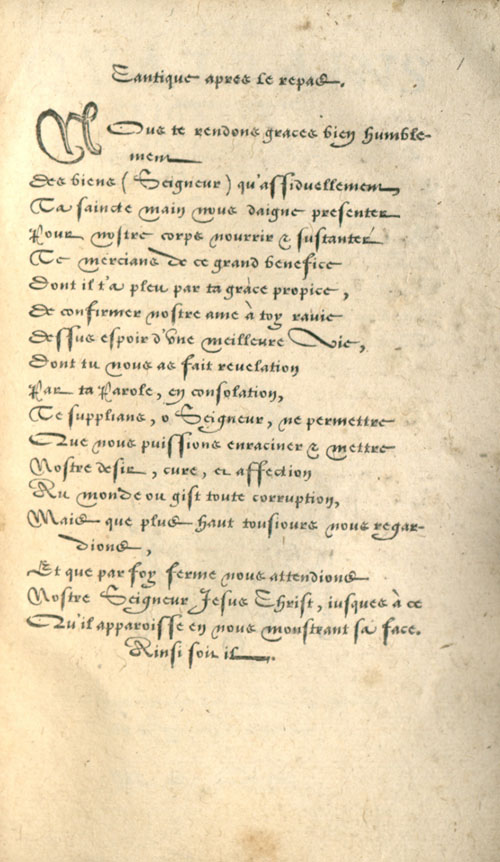 Cantique apres le repas.
NOus te rendons graces bien humble-
ment
Des biens (Seigneur) qu'assiduellement
Ta saincte main nous daigne presenter
Pour nostre corps nourrir & sustanter
Te mercians de ce grand benefice
Dont il t'a pleu par ta grace propice,
De confirmer nostre ame à toy ravie
Dessus espoir d'vne meilleure Vie,
Dont tu nous as fait revelation
Par ta Parole, en consolation,
Te supplians, o Seigneur, ne permettre
Que nous puissions enraciner & mettre
Nostre desir, cure, et affection
Au monde ou gist toute corruption,
Mais que plus haut tousiours nous regar-
dions,
Et que par foy ferme nous attendions
Nostre Seigneur Jesus Christ, iusques à ce
Qu'il apparoisse en nous monstrant sa face.
Ainsi soit il.